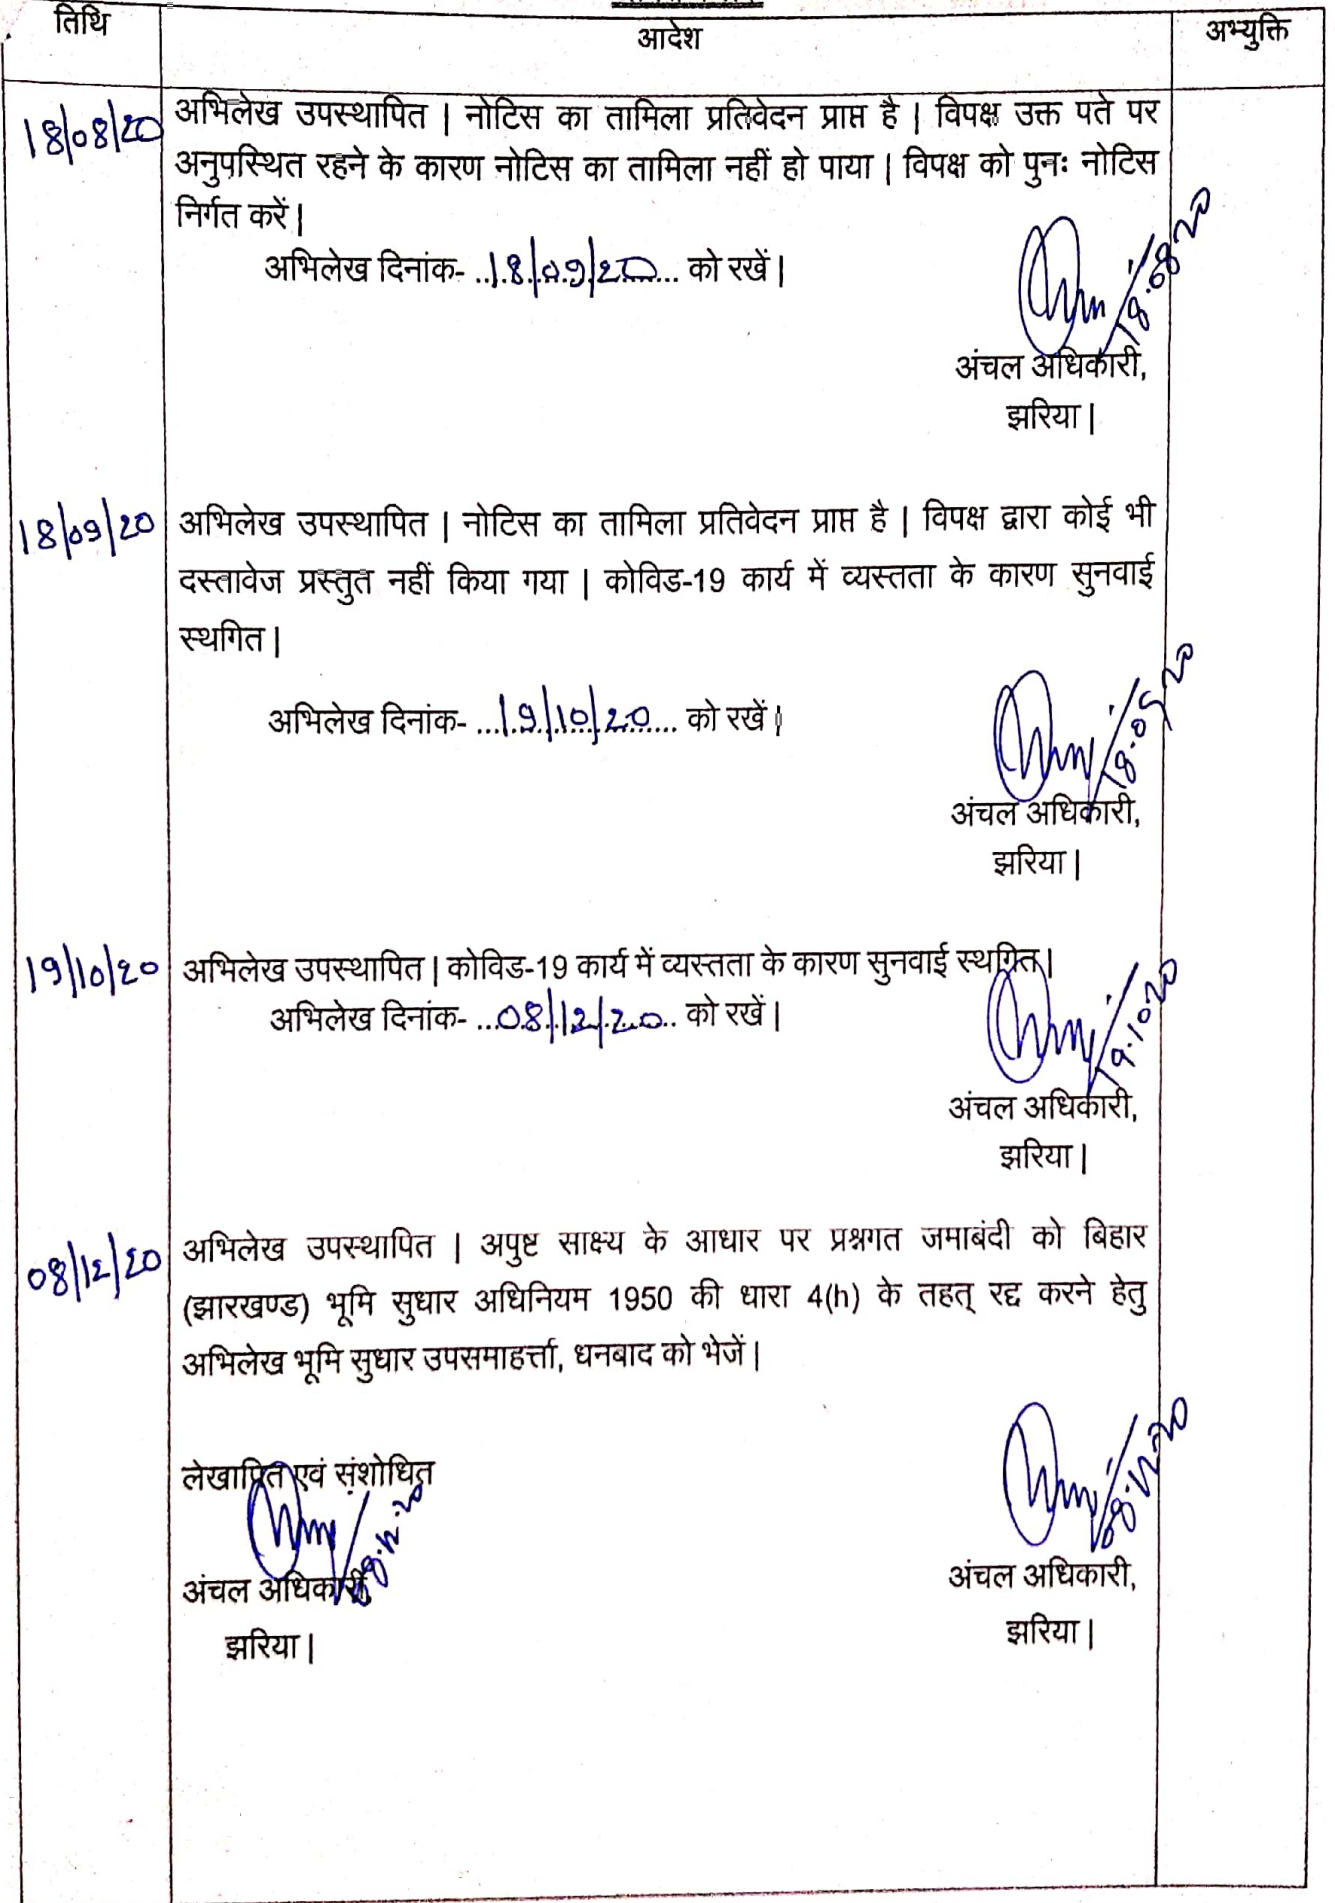 तिथि आदेश अभ्युक्ति
18/08/20 अभिलेख उपस्थापित | नोटिस का तामिला प्रतिवेदन प्राप्त है | विपक्ष उक्त पते पर
अनुपस्थित रहने के कारण नोटिस का तामिला नहीं हो पाया | विपक्ष को पुनः नोटिस
निर्गत करें |
अभिलेख दिनांक- ...18/09/20... को रखें |
18.08.20
अंचल अधिकारी,
झरिया |
18/09/20 अभिलेख उपस्थापित | नोटिस का तामिला प्रतिवेदन प्राप्त है | विपक्ष द्वारा कोई भी
दस्तावेज प्रस्तुत नहीं किया गया | कोविड-19 कार्य में व्यस्तता के कारण सुनवाई
स्थगित |
अभिलेख दिनांक- ...19/10/20... को रखें |
18.09.20
अंचल अधिकारी,
झरिया |
19/10/20 अभिलेख उपस्थापित | कोविड-19 कार्य में व्यस्तता के कारण सुनवाई स्थगित |
अभिलेख दिनांक- ...08/12/20... को रखें |
19.10.20
अंचल अधिकारी,
झरिया |
08/12/20 अभिलेख उपस्थापित | अपुष्ट साक्ष्य के आधार पर प्रश्नगत जमाबंदी को बिहार
(झारखण्ड) भूमि सुधार अधिनियम 1950 की धारा 4(h) के तहत् रद्द करने हेतु
अभिलेख भूमि सुधार उपसमाहर्त्ता, धनबाद को भेजें |
08.12.20
लेखापित एवं संशोधित
08.12.20
अंचल अधिकारी, अंचल अधिकारी,
झरिया | झरिया |